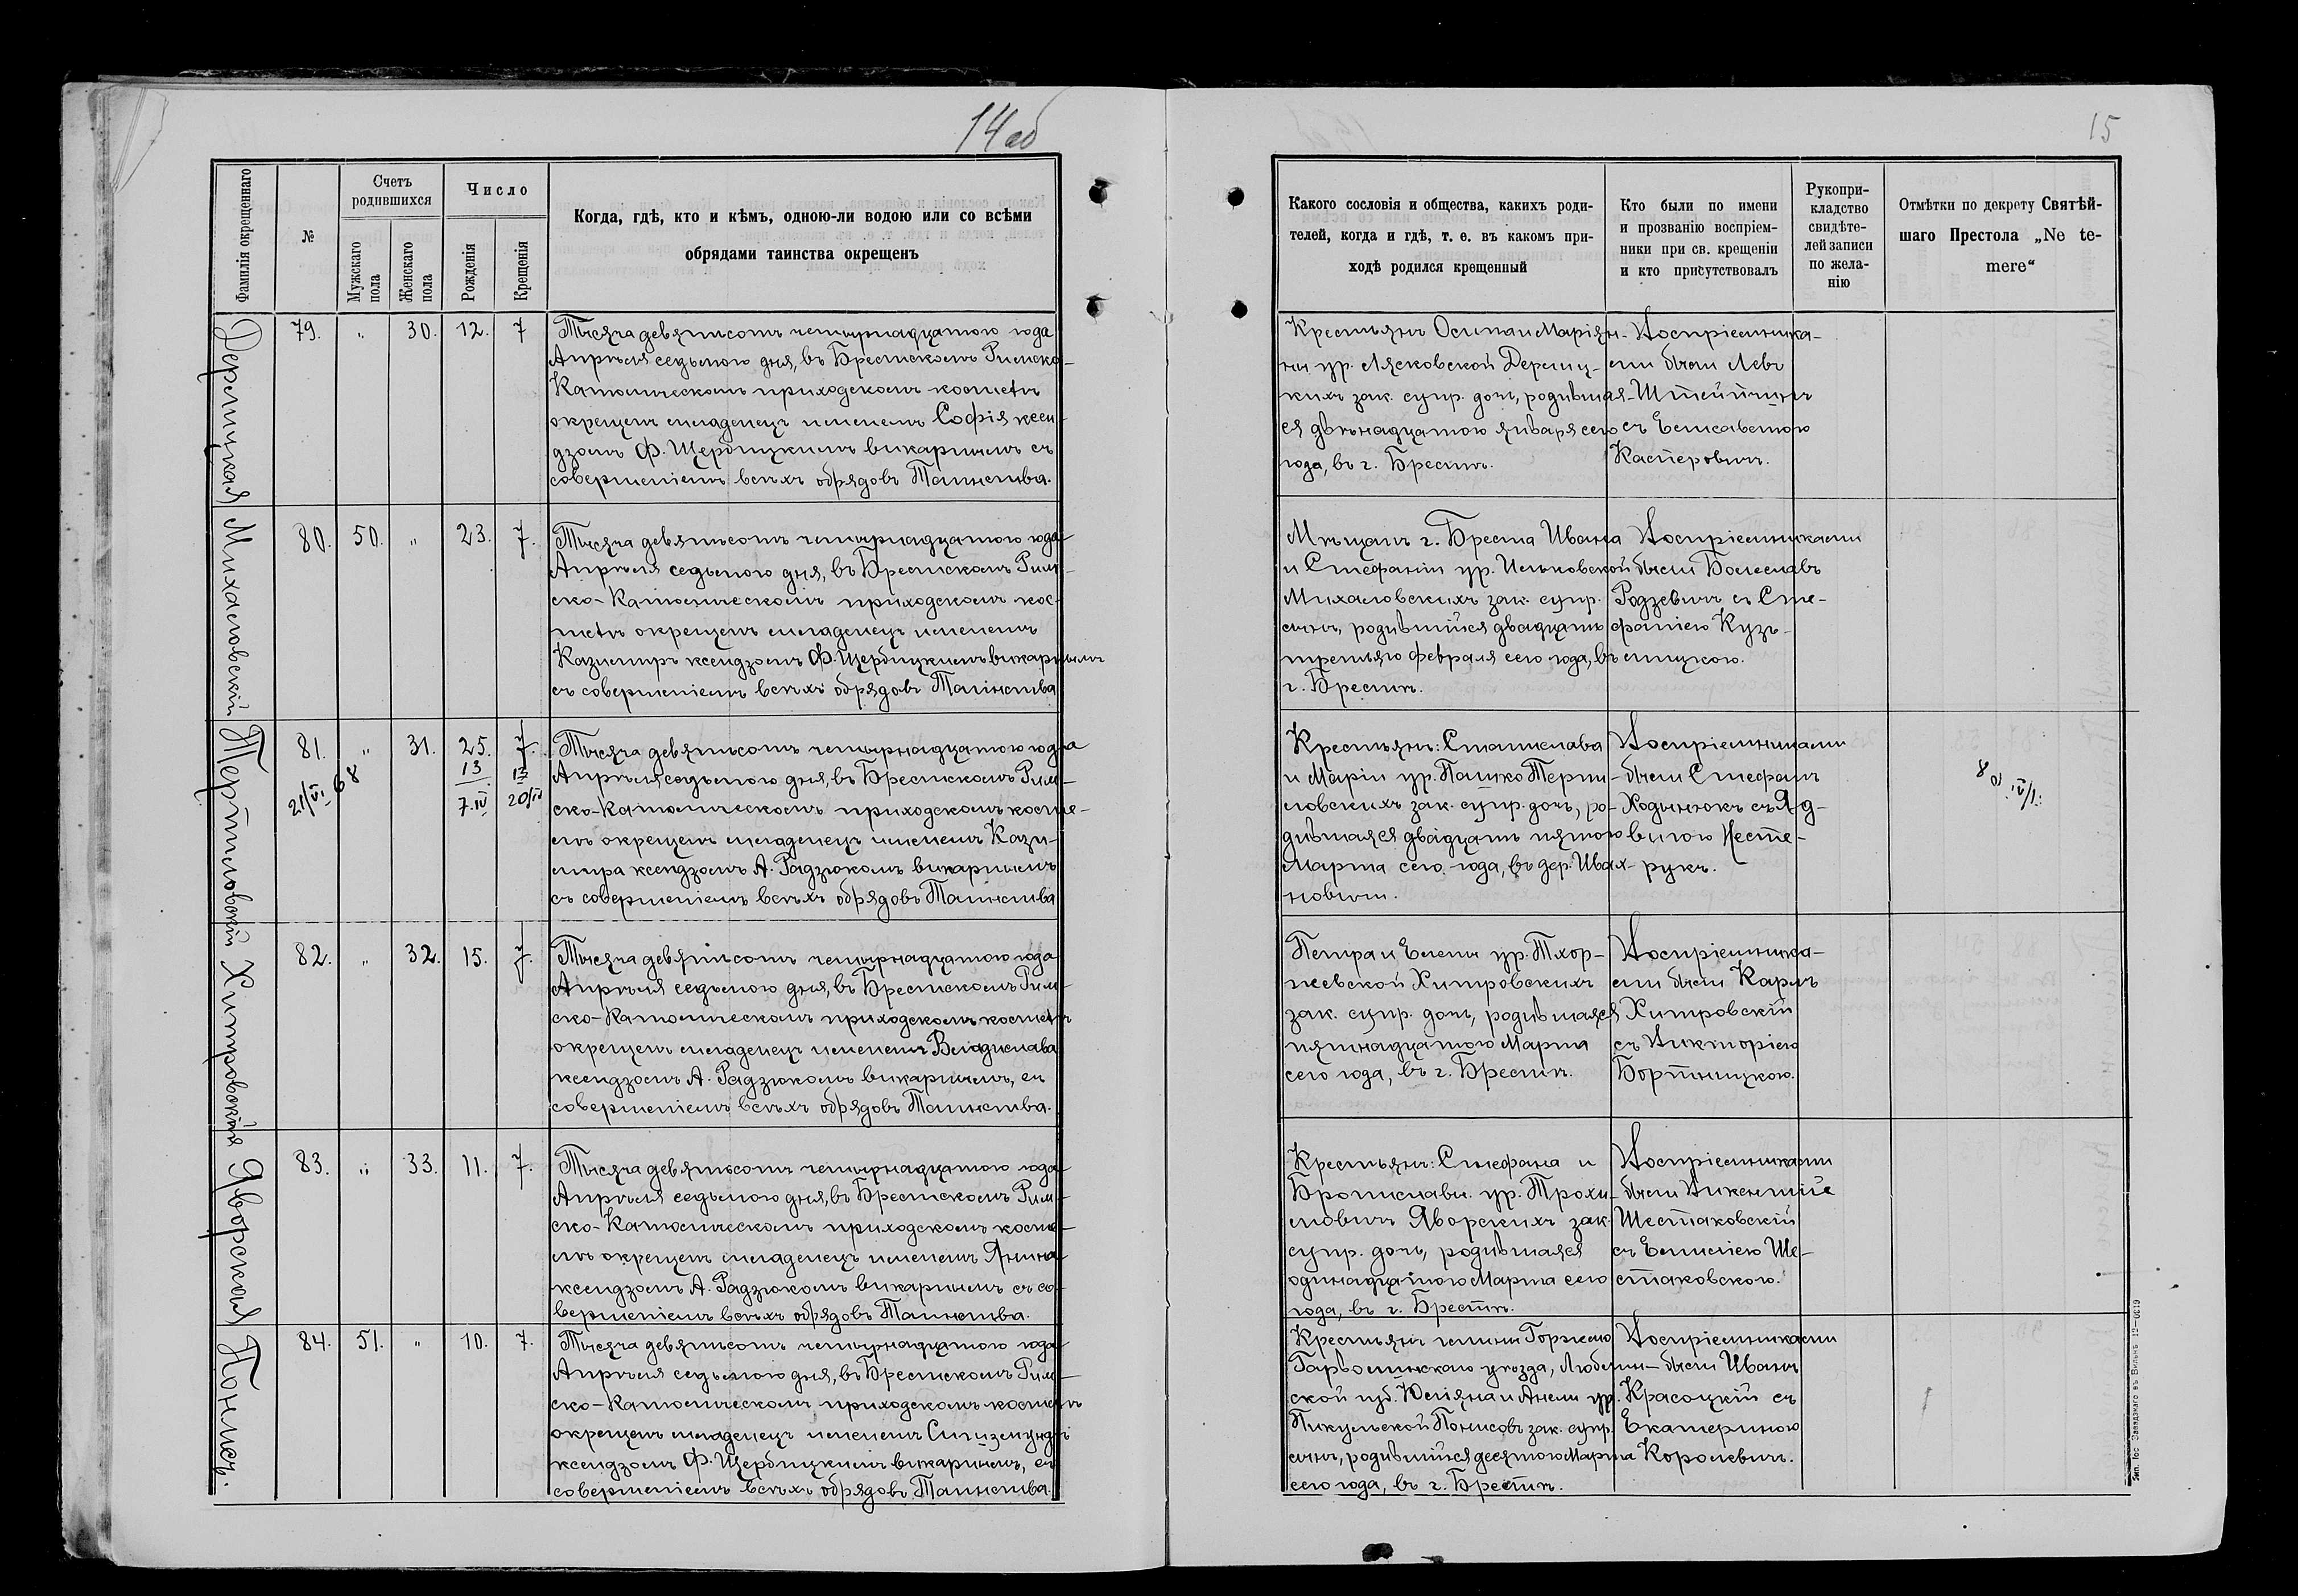 14 об
Фамилія окрещеннаго
№
Счетъ родившихся
Мужскаго пола
Женскаго пола
Число
Рожденія
Крещенія
Когда, гдѣ, кто и кѣмъ, одною-ли водою или со всѣми
обрядами таинства окрещенъ
Дермицкая
79. " 30. 12. 7
Тысяча девятьсотъ четырнадцатого года
Апрѣля седьмого дня, въ Брестскомъ Римско-
Католическомъ приходскомъ костелѣ
окрещенъ младенецъ именемъ Софія ксен-
дзомъ Ф. Щербицкимъ викарнымъ съ
совершеніемъ всѣхъ обрядовъ Таинства.
Михаловскій
80. 50. " 23. 7.
Тысяча девятьсотъ четырнадцатого года
Апрѣля седьмого дня, въ Брестскомъ Рим-
ско-Католическомъ приходскомъ кос-
телѣ окрещенъ младенецъ именемъ
Казимиръ ксендзомъ Ф. Щербицкимъ викарнымъ
съ совершеніемъ всѣхъ обрядовъ Таинства
81. " 31. 25. 7.
13
7.IV 20/IV
21/VI 68
Тысяча девятьсотъ четырнадцатого года
Апрѣля седьмого дня, въ Брестскомъ Рим-
ско-Католическомъ приходскомъ косте-
лѣ окрещенъ младенецъ именемъ Кази-
мира ксендзомъ А. Радзюкомъ викарнымъ
съ совершеніемъ всѣхъ обрядовъ Таинства
Хитровская
82. " 32. 15. 7.
Тысяча девятьсотъ четырнадцатого года
Апрѣля седьмого дня, въ Брестскомъ Рим-
ско-Католическомъ приходскомъ костелѣ
окрещенъ младенецъ именемъ Владислава
ксендзомъ А. Радзюкомъ викарнымъ, съ
совершеніемъ всѣхъ обрядовъ Таинства.
Яворская
83. " 33. 11. 7.
Тысяча девятьсотъ четырнадцатого года
Апрѣля седьмого дня, въ Брестскомъ Рим-
ско-Католическомъ приходскомъ косте-
лѣ окрещенъ младенецъ именемъ Янина
ксендзомъ А. Радзюкомъ викарнымъ съ со-
вершеніемъ всѣхъ обрядовъ Таинства.
Понисъ.
84. 51. " 10. 7.
Тысяча девятьсотъ четырнадцатого года
Апрѣля седьмого дня, въ Брестскомъ Рим-
ско-Католическомъ приходскомъ костелѣ
окрещенъ младенецъ именемъ Сигизмундъ
ксендзомъ Ф. Щербицкимъ викарнымъ, съ
совершеніемъ всѣхъ обрядовъ Таинства.
15
Какого сословія и общества, какихъ роди-
телей, когда и гдѣ, т. е. въ какомъ при-
ходѣ родился крещенный
Кто были по имени
и прозванію воспріем-
ники при св. крещеніи
и кто присутствовалъ
Рукопри-
кладство
свидѣте-
лей записи
по жела-
нію
Отмѣтки по декрету Святѣй-
шаго Престола „Ne te-
mere“
Крестьянъ Осипа и Маріян-
ны ур. Лясковской Дермиц-
кихъ зак. супр. дочь, родившая-
ся двѣнадцатого января сего
года, въ г. Брестѣ.
Воспріемника-
ми были Левъ
съ Елисаветою
Касперовичъ.
Мѣщанъ г. Бреста Ивана
и Стефаніи ур. Ильковской
Михаловскихъ зак. супр.
сынъ, родившійся двадцать
третьяго февраля сего года, въ
г. Брестѣ.
Воспріемниками
были Болеславъ
Родзевичъ съ Сте-
фаніею Кузь-
мицкою.
Крестьянъ: Станислава
и Маріи ур. Пашко
зак. супр. дочь, ро-
дившаяся двадцать пятого
Марта сего года, въ дер.
новичи.
Воспріемниками
были Стефанъ
Ходынюкъ съ Яд-
вигою Несте-
рукъ.
Петра и Елены ур. Тхор-
жевской Хитровскихъ
зак. супр. дочь, родившаяся
пятнадцатого Марта
сего года, въ г. Брестѣ.
Воспріемника-
ми были Карлъ
Хитровскій
съ Викторіею
Бортницкою.
Крестьянъ: Стефана и
Брониславы ур. Трохи-
мовичъ Яворскихъ зак.
супр. дочь, родившаяся
одинадцатого Марта сего
года, въ г. Брестѣ.
Воспріемниками
были Викентій
Шестаковскій
съ Емиліею Ше-
стаковскою.
Крестьянъ гмины Горжно
Гарволинскаго уѣзда, Люблин-
ской губ. Юліяна и Анели ур.
Пикульской Понисовъ зак. супр.
сынъ, родившійся десятого Марта
сего года, въ г. Брестѣ.
Воспріемниками
были Иванъ
Красоцкій съ
Екатериною
Королевичъ.